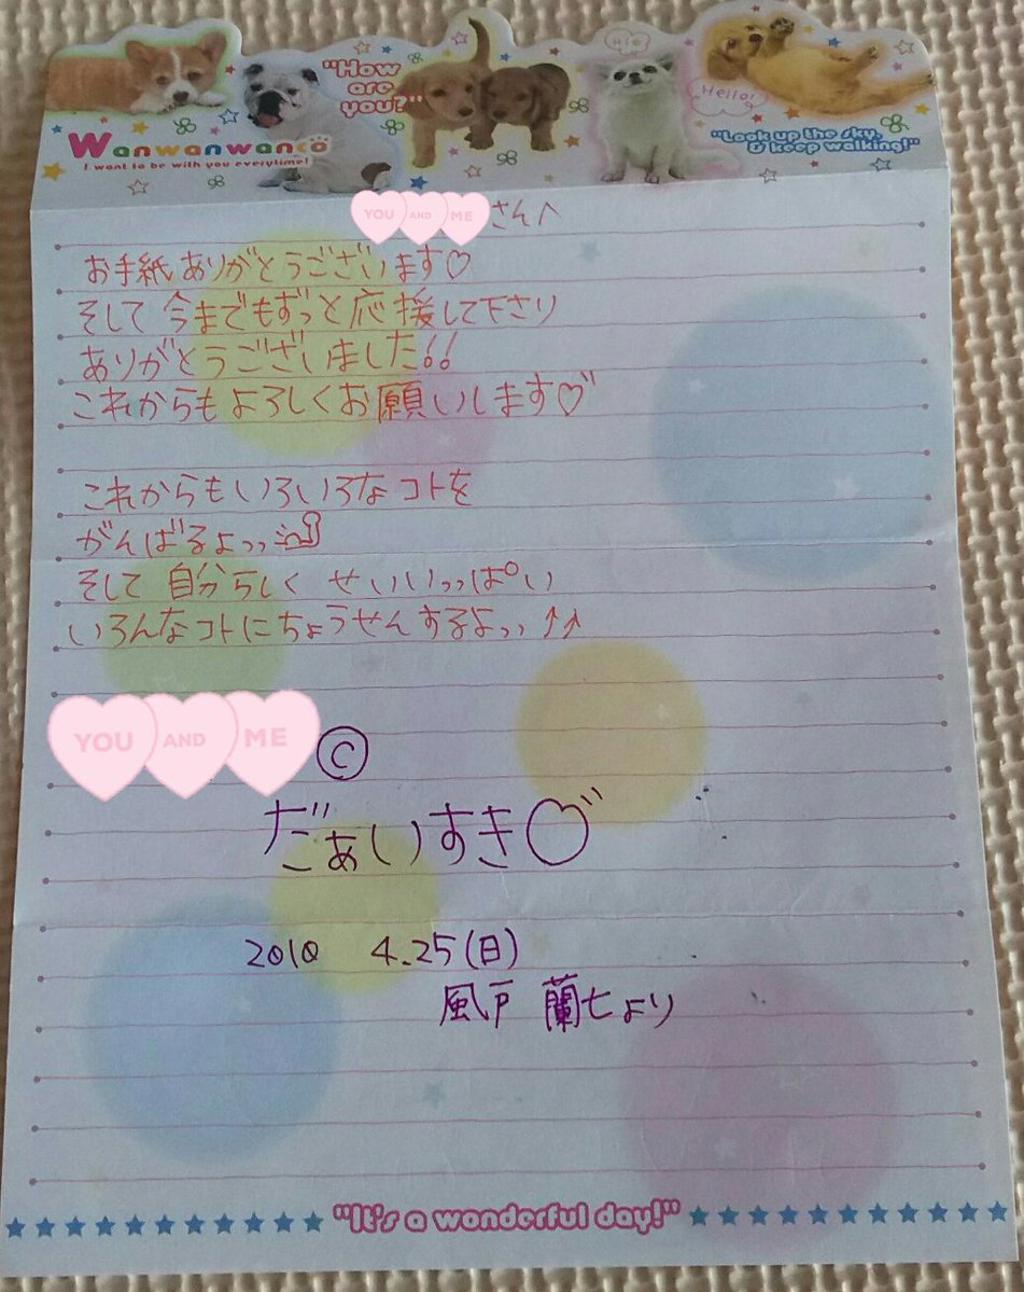 Hello!
"How are you?"
Hello!
Wanwanwanco
I want to be with you everytime!
"Look up the sky, & keep walking!"
YOU AND ME さんへ
お手紙ありがとうございます♡
そして今までもずっと応援して下さり
ありがとうございました!!
これからもよろしくお願いします♡"
これからもいろいろなコトを
がんばるよっっ
そして自分らしく せいいっっぱい
いろんなコトにちょうせんするよっっ ↑↑
YOU AND ME ©
だぁいすき♡"
2010 4.25(日)
風戸 蘭七より
"It's a wonderful day!"